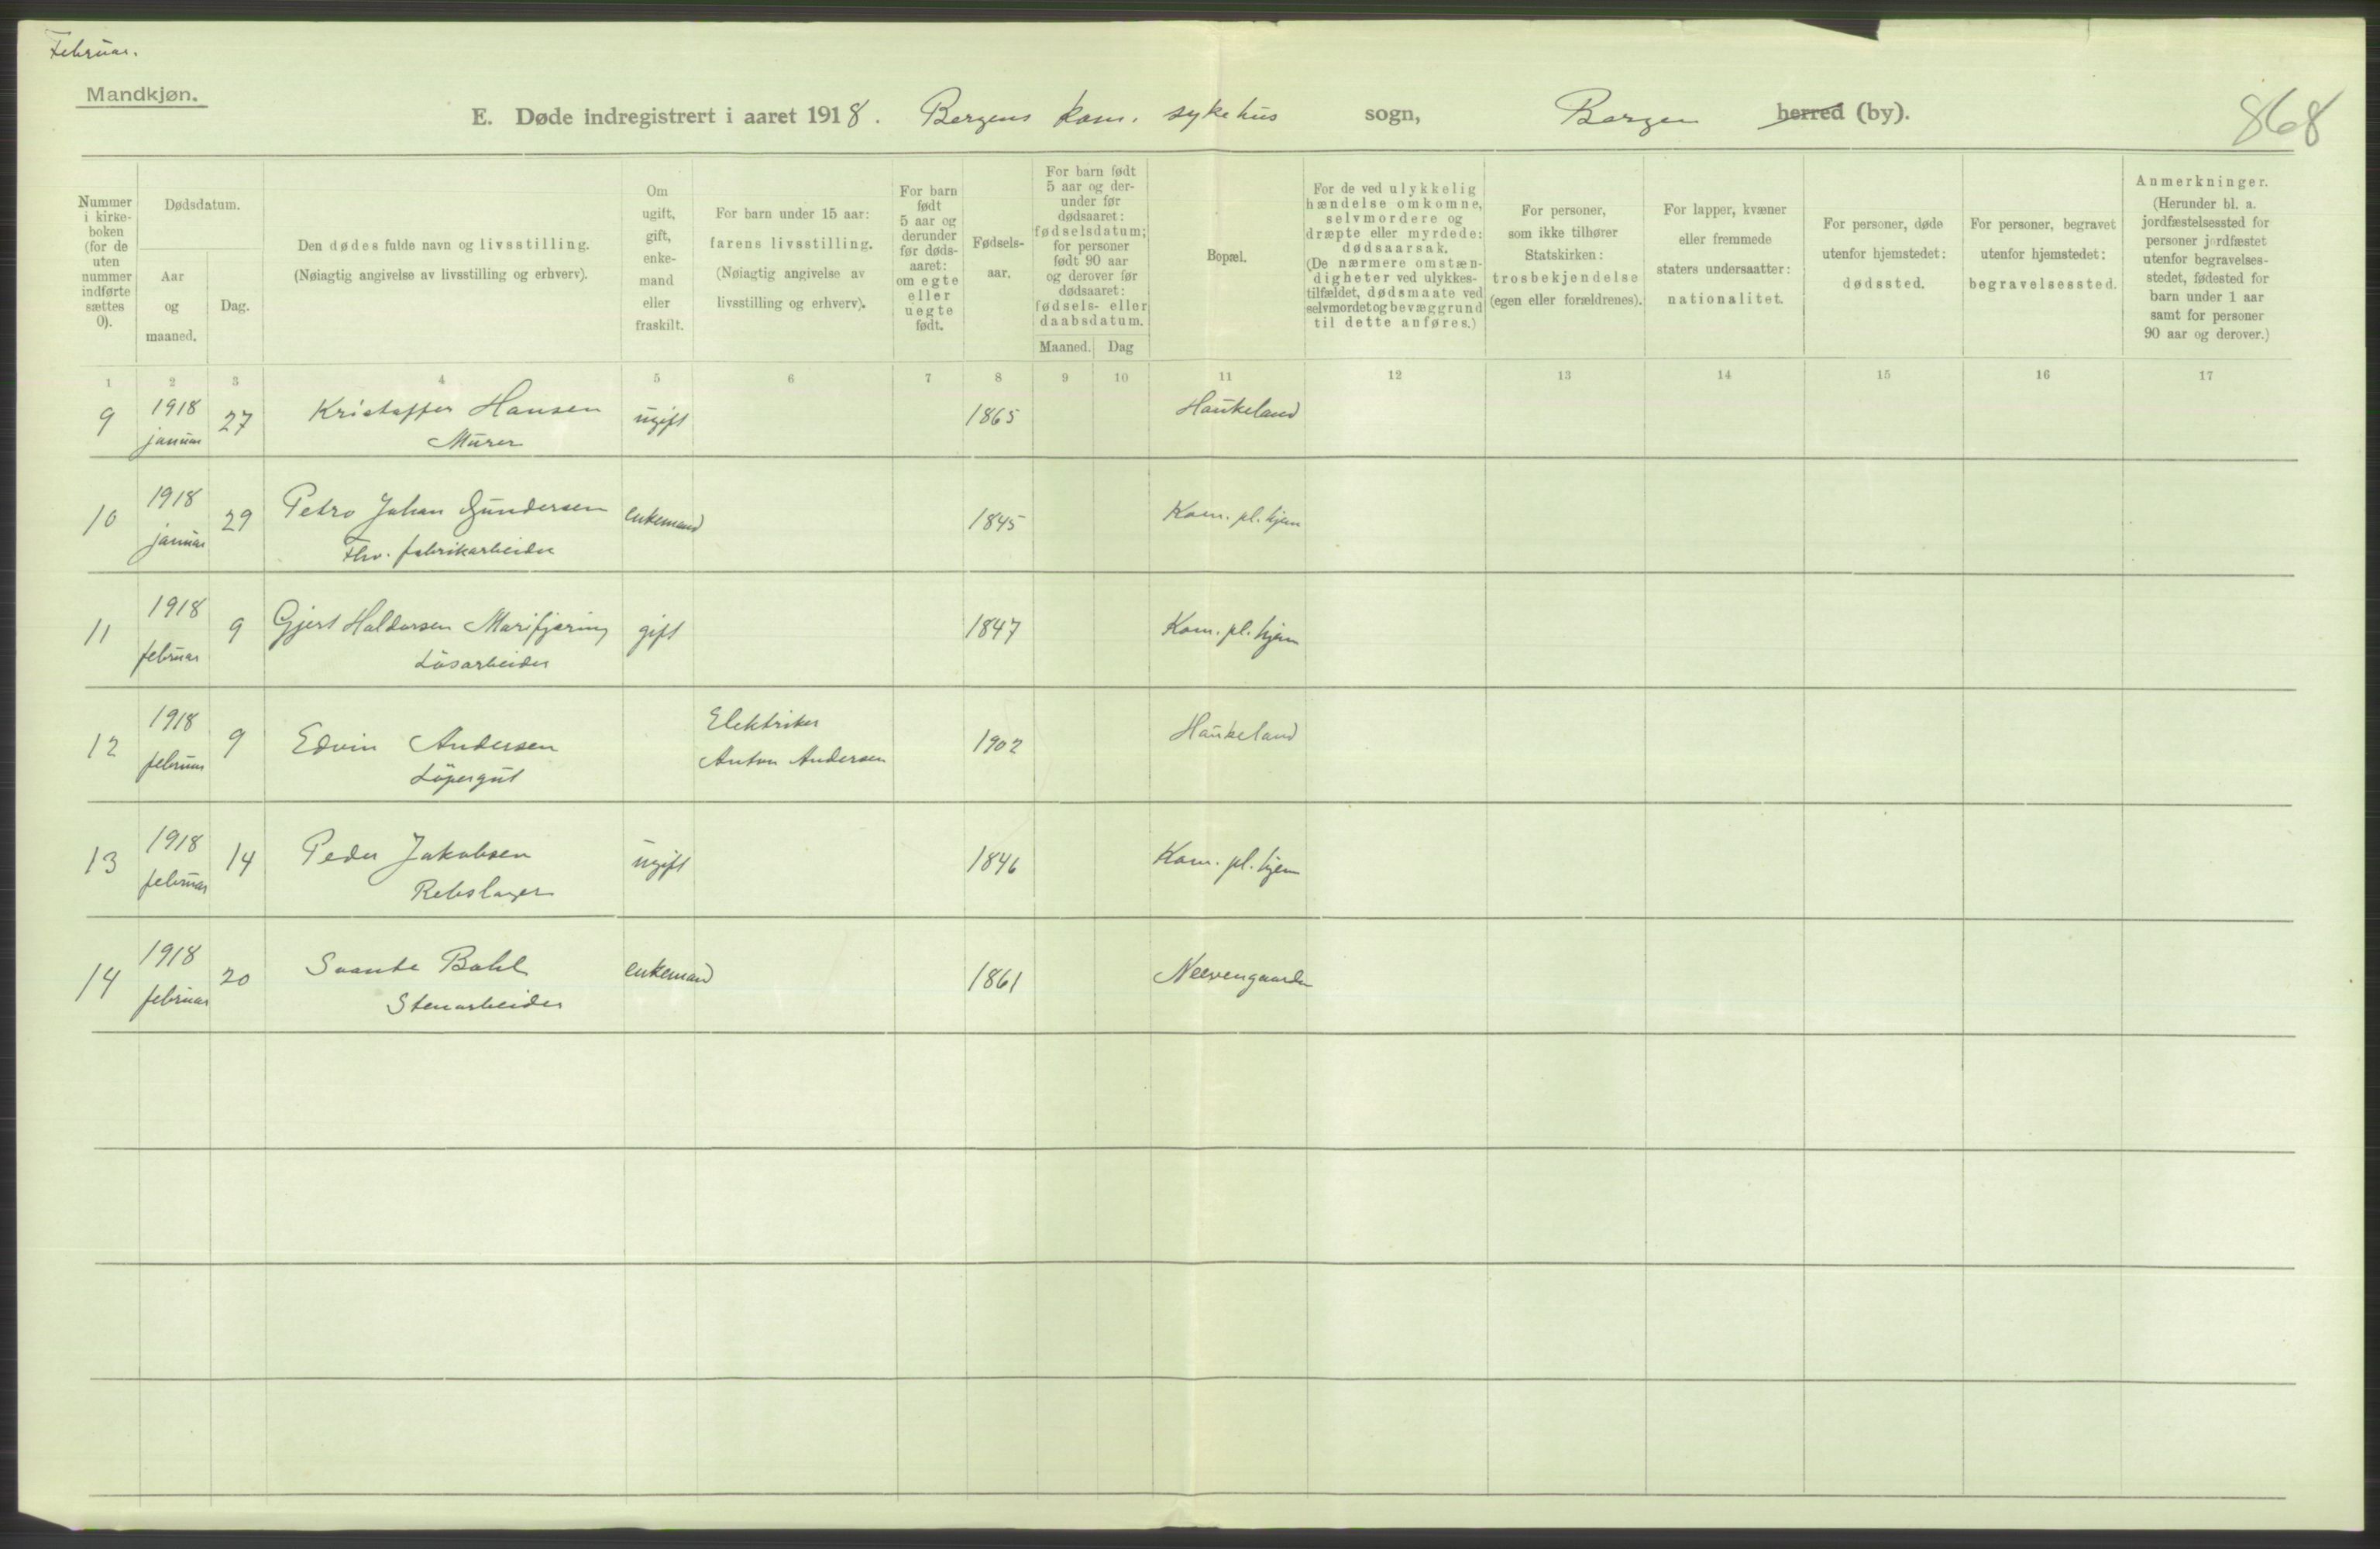 Februar.
Mandkjøn.
E. Døde indregistrert i aaret 1918. Bergens kom. sykehus sogn, Bergen herred (by).
868
Nummer i kirkeboken (for de uten nummer indførte sættes 0).
Dødsdatum.
Aar og maaned.
Dag.
Den dødes fulde navn og livsstilling.
(Nøiagtig angivelse av livsstilling og erhverv).
Om ugift, gift, enkemand eller fraskilt.
For barn under 15 aar: farens livsstilling.
(Nøiagtig angivelse av livsstilling og erhverv).
For barn født 5 aar og derunder før dødsaaret: om egte eller uegte født.
Fødselsaar.
For barn født 5 aar og derunder før dødsaaret: fødselsdatum; for personer født 90 aar og derover før dødsaaret: fødsels- eller daabsdatum.
Maaned. Dag
Bopæl.
For de ved ulykkelig hændelse omkomne, selvmordere og dræpte eller myrdede: dødsaarsak.
(De nærmere omstændigheter ved ulykkestilfældet, dødsmaate ved selvmordet og bevæggrund til dette anføres.)
For personer, som ikke tilhører Statskirken: trosbekjendelse (egen eller forældrenes).
For lapper, kvæner eller fremmede staters undersaatter: nationalitet.
For personer, døde utenfor hjemstedet: dødssted.
For personer, begravet utenfor hjemstedet: begravelsessted.
Anmerkninger.
(Herunder bl. a. jordfæstelsessted for personer jordfæstet utenfor begravelsesstedet, fødested for barn under 1 aar samt for personer 90 aar og derover.)
1 2 3 4 5 6 7 8 9 10 11 12 13 14 15 16 17
9 1918 januar 27 Kristoffer Hansen ugift 1865 Haukeland
Murer
10 1918 januar 29 Petro Johan Gundersen enkemand 1845 Kom. pl. hjem
Fhv. fabrikarbeider
11 1918 februar 9 Gjert Haldorsen Marifjæring gift 1847 Kom. pl. hjem
Løsarbeider
12 1918 februar 9 Edvin Andersen Elektriker 1902 Haukeland
Løpergut Anton Andersen
13 1918 februar 14 Peder Jakobsen ugift 1846 Kom. pl. hjem
Rebslager
14 1918 februar 20 Svante Bohl enkemand 1861 Neevengaarden
Stenarbeider